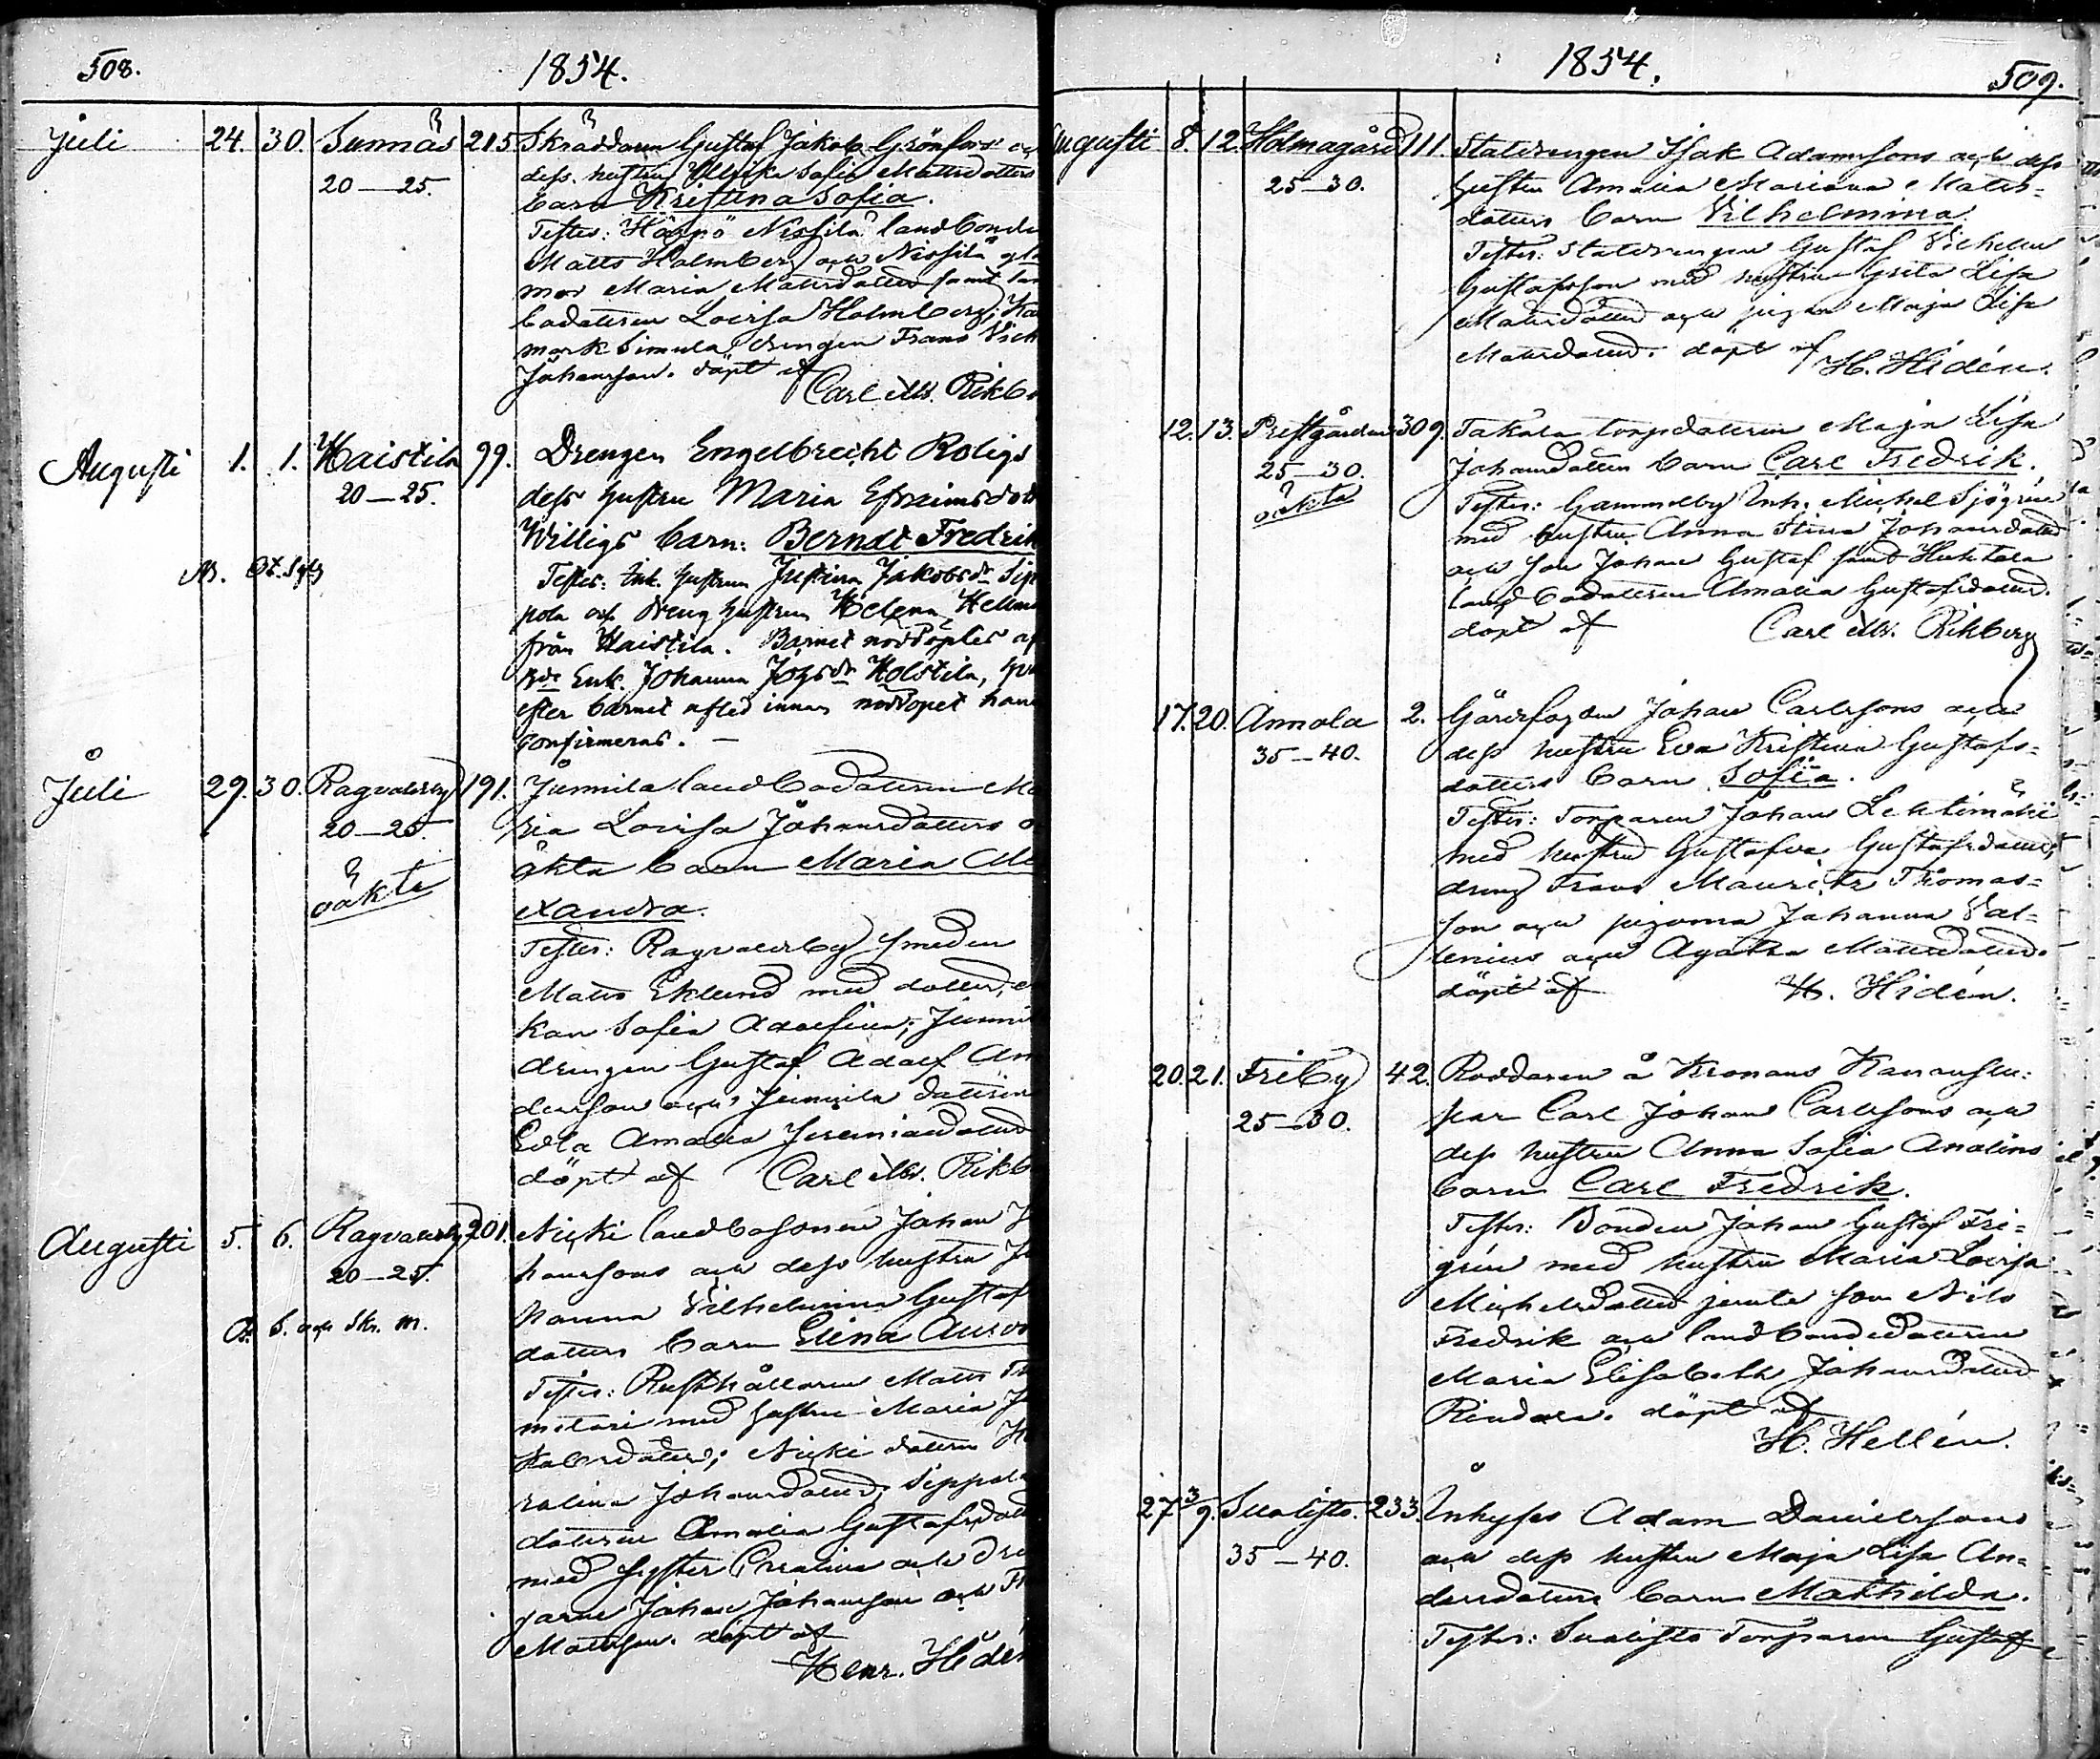 508.
1854.
Juli 24. 30. Sunnäs 215 Skräddaren Gustaf Jakob Grönfors
20—25.
dess hustru Ulrika Sofia Mattsdotters
barn Kristina Sofia.
Testes: Harjo Nissilä landbonde
Matts Holmberg och Nissilä
mor Maria Mattsdotter samt
bodottren Lovisa Holmberg;
mark Simula drengen Frans
Johansson. döpt af
Carl M. Rikb
Augusti 1. 1. Haistila 99. Drengen Engelbrecht Roligs
20—25.
dess hustru Maria Efraimsdott
Willigs barn: Berndt Fredrik
Testes: Inh. hustrun Justina Jakobsdr
pola och Dreng hustrun Helena Hellm
från Haistila. Barnet nöddöptes af
Enk. Johanna Johsdr Holstila,
efter barnet afled innan nöddopet
confirmeras. —
Juli 29. 30. Ragvalsby 191. Junnila landbodottren Ma
20—25.
ria Lovisa Johansdotters o
oäkta
äkta barn Maria Al
exandra.
Testes: Ragvalsby smeden
Matts Eklund med dotter,
kan Sofia Adolfina; Junni
drengen Gustaf Adolf An
dersson och Junnila dottren
Edla Amalia Jeremiasdotter
döpt af Carl M. Rikb
Augusti 5. 6. Ragvalsby 201. Nicki landbosonen Johan J
20—25.
hanssons och dess hustru J
hanna Vilhelmina Gustaf
6. Skr. m.
dotters barn Elina Auro
Testes: Rusthållaren Matts
med hustru Maria
dotter; Nicki dottren
Johansdotter; Sippola
dottren Amalia Gustafsdott
med syster och dre
garne Johan Johansson och
Mattsson. döpt af
Henr. Hidén
1854.
509.
Augusti 8. 12. Holmagård 111. Statdrengen Isak Adamssons och dess
25—30.
hustru Amalia Mariana Matts=
dotters barn Vilhelmina.
Testes: Statdrengen Gustaf Vilhelm
Gustafsson med hustru Greta Lisa
Mattsdotter och pigan Maja Lisa
Mattsdotter. döpt af
H. Hidén.
12. 13. Prestgården 309. Takala torpdottren Maja Lisa
25—30.
Johansdotters barn Carl Fredrik.
oäkta
Testes: Gammelby Inh. Michel Sjögrén
med hustru Anna Stina Johansdotter
och son Johan Gustaf samt Huhtala
landbodottren Amalia Gustafsdotter.
döpt af Carl M. Rikberg
17. 20. Annola 2. Gårdsfogden Johan Carlssons och
35—40.
dess hustru Eva Kristina Gustafs=
dotters barn Sofia.
Testes: Torparen Johan Lehtimäki
med hustru Gustafva Gustafsdotter,
dreng Frans Mauritz Thomas=
son och pigorna Johanna Val=
lenius och Agatha Mattsdotter.
döpt af H. Hidén.
20. 21. Friby 42. Roddaren å Kronans Kanonslu=
25—30.
par Carl Johan Carlssons och
dess hustru Anna Sofia Analins
barn Carl Fredrik.
Testes: Bonden Johan Gustaf Fri=
grén med hustru Maria Lovisa
Michelsdotter jemte son Nils
Fredrik och landbondedottren
Maria Elisabeth Johansdotter
Rindara. döpt af
H. Hellén.
27. 3/9. Sualisto. 233. Inhyses Adam Danielssons
35—40.
och dess hustru Maja Lisa An=
dersdotters barn Mathilda.
Testes: Sualisto Torparen Gustaf